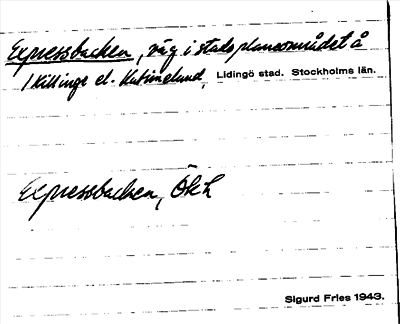 Expressbacken, väg i stadsplaneområdet å
Killinge el. Katrinelund, Lidingö stad. Stockholms län.
Expressbacken, Ökh
Sigurd Fries 1943.